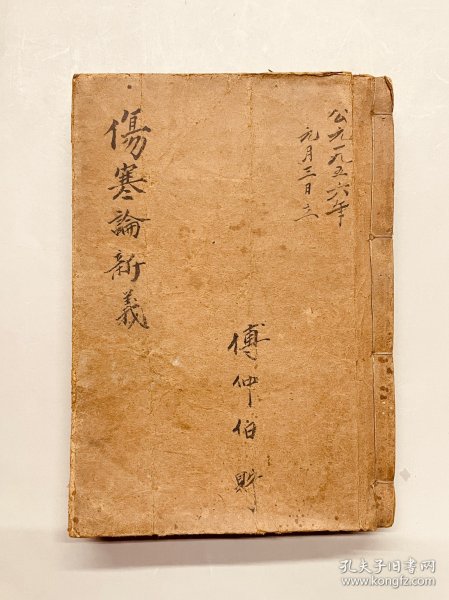 公元一九五六年
元月三日立
傷寒論新義
傅仲伯
孔夫子旧书网
www.kongfz.com